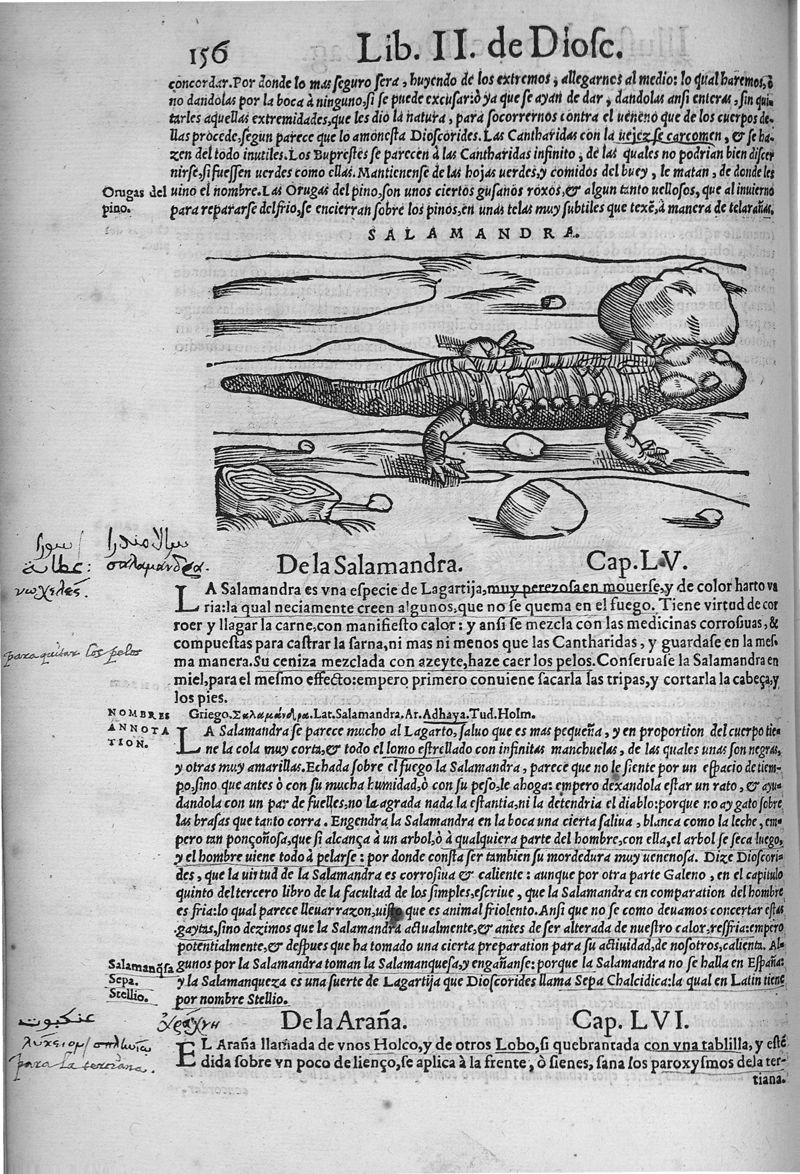 156
Lib. II. de Diosc.
concordar. Por donde lo mas seguro sera, huyendo de los extremos, allegarnos al medio: lo qual haremos, ò
no dandolas por la boca à ninguno, si se puede excusar: ò ya que se ayan de dar, dandolas ansi enteras, sin qui-
tarles aquellas extremidades, que les dio la natura, para socorrernos contra el ueneno que de los cuerpos de-
llas procede, segun parece que lo amonesta Dioscorides. Las Cantharidas con la uejez se carcomen, & se ha-
zen del todo inutiles. Los Buprestes se parecen à las Cantharidas infinito, de las quales no podrian bien discer
nirse, si fuessen uerdes como ellas. Mantienense de las hojas uerdes, y comidos del buey, le matan, de donde les
uino el nombre. Las Orugas del pino, son unos ciertos gusanos roxos, & algun tanto uellosos, que al inuierno
para repararse del frio, se encierran sobre los pinos, en unas telas muy subtiles que texē, à manera de telarañas.
Orugas del
pino.
SALAMANDRA.
سورا / سالامندرا
عظاية: σαλαμάνδρα.
νωχελές.
De la Salamandra. Cap. LV.
LA Salamandra es vna especie de Lagartija, muy perezosa en mouerse, y de color harto va
ria: la qual neciamente creen algunos, que no se quema en el fuego. Tiene virtud de cor
roer y llagar la carne, con manifiesto calor: y ansi se mezcla con las medicinas corrosiuas, &
compuestas para castrar la sarna, ni mas ni menos que las Cantharidas, y guardase en la mes-
ma manera. Su ceniza mezclada con azeyte, haze caer los pelos. Conseruase la Salamandra en
miel, para el mesmo effecto: empero primero conuiene sacarla las tripas, y cortarla la cabeça, y
los pies.
para quitar los pelos
NOMBRES
Griego. Σαλαμάνδρα. Lat. Salamandra. Ar. Adhaya. Tud. Holm.
ANNOTA
TION.
LA Salamandra se parece mucho al Lagarto, saluo que es mas pequeña, y en proportion del cuerpo tie-
ne la cola muy corta, & todo el lomo estrellado con infinitas manchuelas, de las quales unas son negras,
y otras muy amarillas. Echada sobre el fuego la Salamandra, parece que no le siente por un espacio de tiem-
po, sino que antes ò con su mucha humidad, ò con su peso, le ahoga: empero dexandola estar un rato, & ayu-
dandola con un par de fuelles, no la agrada nada la estantia, ni la detendria el diablo: porque no ay gato sobre
las brasas que tanto corra. Engendra la Salamandra en la boca una cierta saliua, blanca como la leche, em-
pero tan ponçoñosa, que si alcança à un arbol, ò à qualquiera parte del hombre, con ella, el arbol se seca luego,
y el hombre uiene todo à pelarse: por donde consta ser tambien su mordedura muy uenenosa. Dize Dioscori-
des, que la uirtud de la Salamandra es corrosiua & caliente: aunque por otra parte Galeno, en el capitulo
quinto del tercero libro de la facultad de los simples, escriue, que la Salamandra en comparation del hombre
es fria: lo qual parece lleuar razon, uisto que es animal friolento. Ansi que no se como deuamos concertar estas
gaytas, sino dezimos que la Salamandra actualmente, & antes de ser alterada de nuestro calor, resfria: empero
potentialmente, & despues que ha tomado una cierta preparation para su actiuidad, de nosotros, calienta. Al-
gunos por la Salamandra toman la Salamanquesa, y engañanse: porque la Salamandra no se halla en España:
y la Salamanqueza es una suerte de Lagartija que Dioscorides llama Sepa Chalcidica: la qual en Latin tiene
por nombre Stellio.
Salamanq̃sa
Sepa.
Stellio.
عنكبوت ἀράχνη
De la Araña. Cap. LVI.
EL Araña llamada de vnos Holco, y de otros Lobo, si quebrantada con vna tablilla, y esté
dida sobre vn poco de lienço, se aplica à la frente, ò sienes, sana los paroxysmos de la ter-
tiana.
para la terciana.